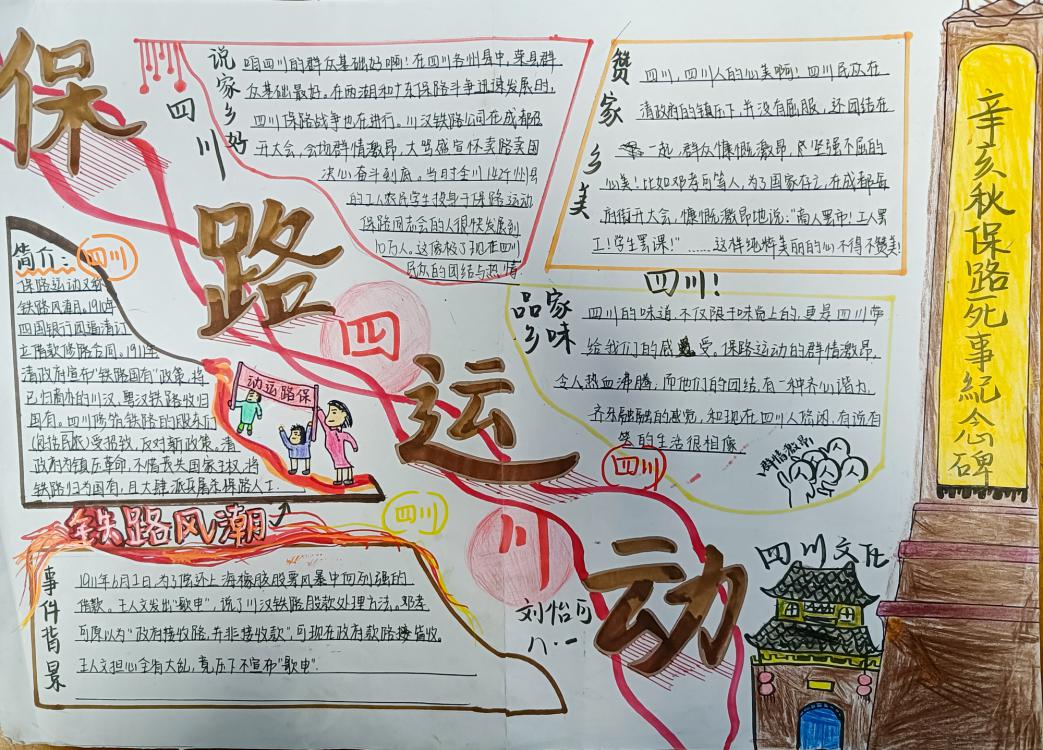 保路运动
四川
说家乡好
四川
咱四川的群众基础好啊!在四川各州县中,荣县群
众基础最好。在两湖和广东保路斗争迅速发展时,
四川保路战争也在进行。川汉铁路公司在成都召
开大会,会场群情激昂,大骂盛宣怀卖路卖国
决心奋斗到底。当时全川142个州县
的工人农民学生投身于保路运动
保路同志会的人很快发展到
10万人。这像极了现在四川
民众的团结与热情.
赞家乡美
四川,四川人的心美啊!四川民众在
清政府的镇压下,并没有屈服,还团结在
一起,群众慷慨激昂,坚强不屈的
心美!比如邓孝可等人,为了国家存亡,在成都岳
府街开大会,慷慨激昂地说:"商人罢市!工人罢
工!学生罢课!"……这样纯粹美丽的心不得不赞美!
四川!
简介:
四川
保路运动又称
铁路风潮。1910年
四国银行团逼清订
立借款修路合同。1911年
清政府宣布"铁路国有"政策,将
已归商办的川汉、粤汉铁路收归
国有。四川修筑铁路的股东们
(包括民众)受损我,反对新政策。清
政府为镇压革命,不惜丧失国家主权,将
铁路归为国有,且大肆派兵屠杀保路人工.
保路运动
品家乡味
四川的味道,不仅限于味觉上的,更是四川带
给我们的感受,保路运动的群情激昂,
令人热血沸腾,而他们的团结,有一种齐心协力,
齐乐融融的感觉,和现在四川人悠闲,有说有
笑的生活很相像
四川
群情激昂
铁路风潮
四川
事件背景
1911年6月1日,为了偿还上海橡胶股票风暴中四列强的
借款。王人文发出"歌电",说了川汉铁路股款处理方法。邓孝
可原以为"政府接收路,并非接收款",可现在政府款路接皆收。
王人文担心会有大乱,竟压下不宣布"歌电".
刘怡可
八·一
四川文化
辛亥秋保路死事紀念碑